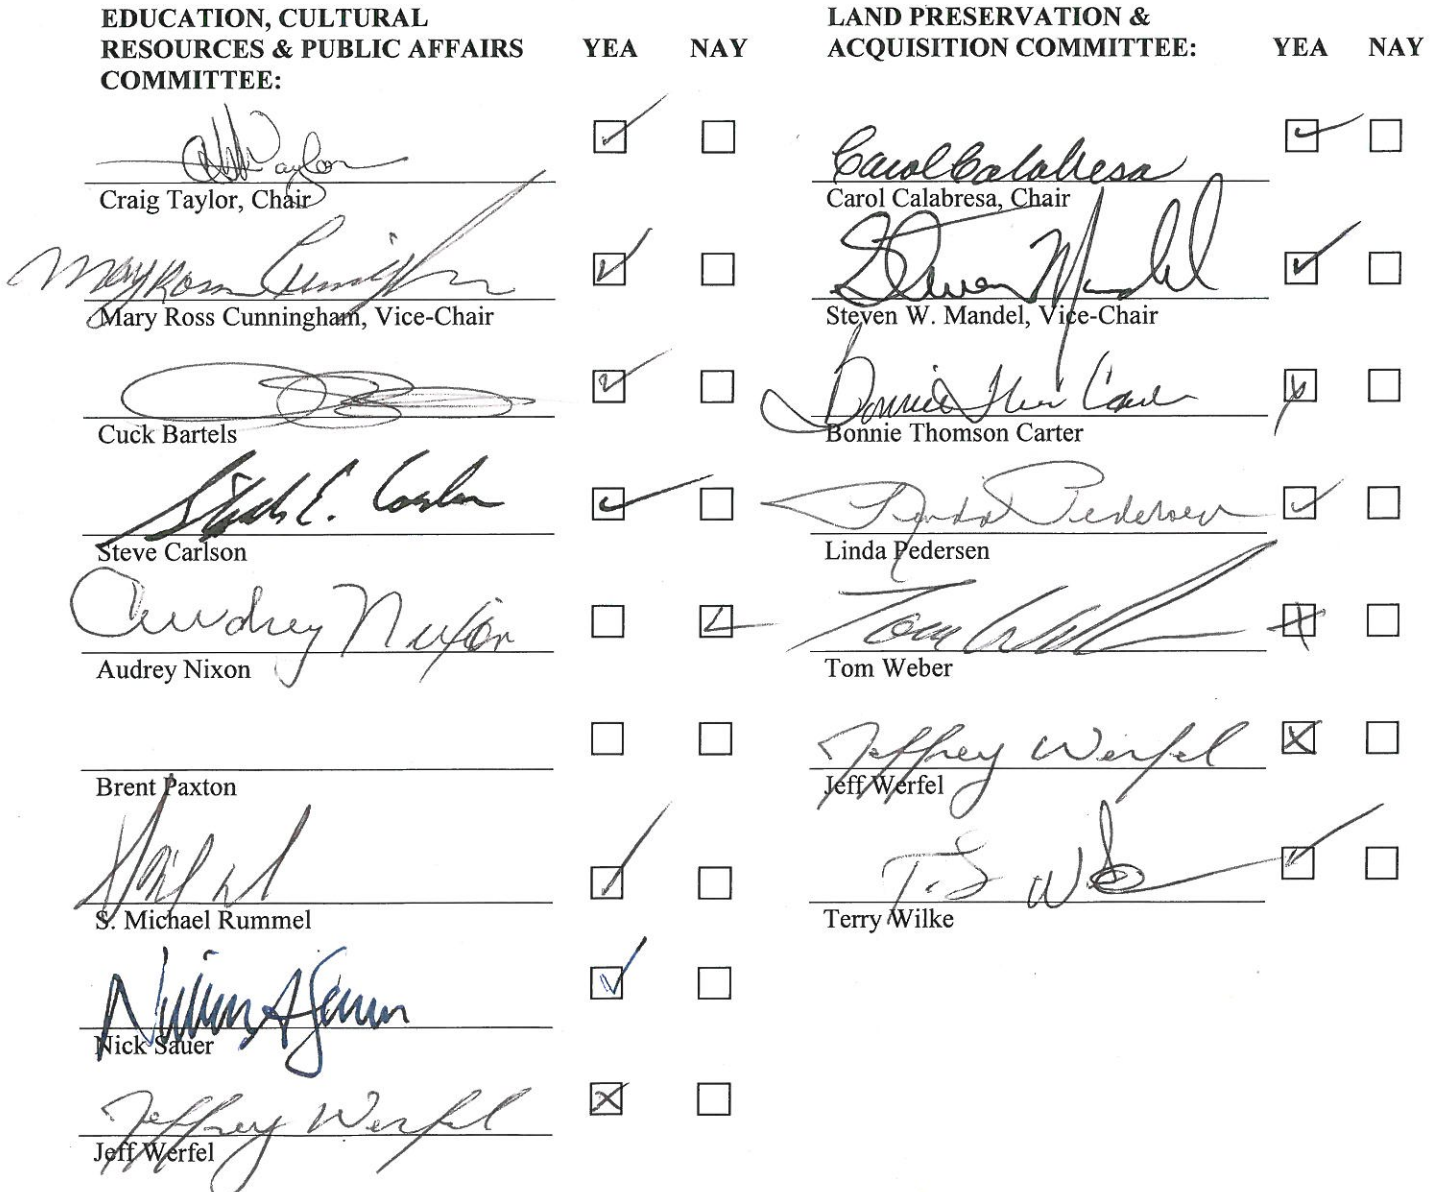 EDUCATION, CULTURAL
RESOURCES & PUBLIC AFFAIRS
COMMITTEE:
YEA NAY
Craig Taylor, Chair
Mary Ross Cunningham, Vice-Chair
Cuck Bartels
Steve Carlson
Audrey Nixon
Audrey Nixon
Brent Paxton
S. Michael Rummel
Nick Sauer
Jeffrey Werfel
Jeff Werfel
LAND PRESERVATION &
ACQUISITION COMMITTEE:
YEA NAY
Carol Calabresa
Carol Calabresa, Chair
Steven Mandel
Steven W. Mandel, Vice-Chair
Bonnie Thomson Carter
Linda Pedersen
Linda Pedersen
Tom Weber
Jeffrey Werfel
Jeff Werfel
Terry Wilke